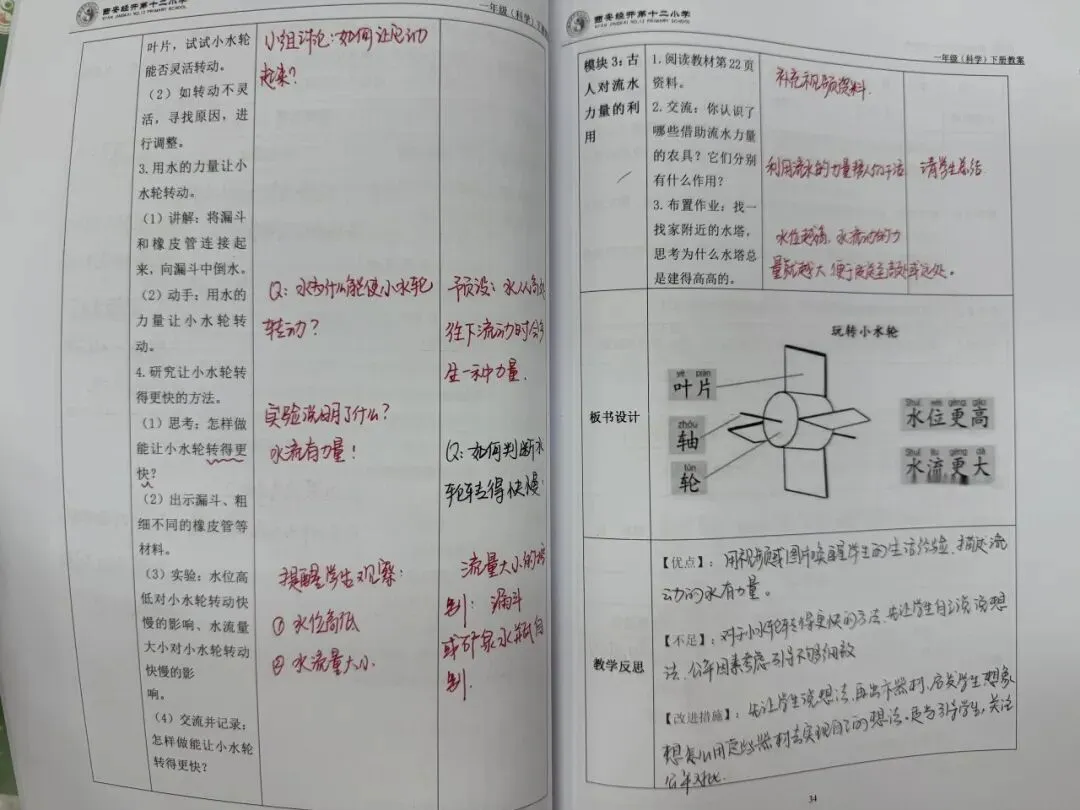 西安经开第十二小学
XI'AN JINGKAI NO.12 PRIMARY SCHOOL
一年级（科学）下册教案
叶片，试试小水轮
能否灵活转动。
（2）如转动不灵
活，寻找原因，进
行调整。
3.用水的力量让小
水轮转动。
（1）讲解：将漏斗
和橡皮管连接起
来，向漏斗中倒水。
（2）动手：用水的
力量让小水轮转
动。
4.研究让小水轮转
得更快的方法。
（1）思考：怎样做
能让小水轮转得更
快？
（2）出示漏斗、粗
细不同的橡皮管等
材料。
（3）实验：水位高
低对小水轮转动快
慢的影响、水流量
大小对小水轮转动
快慢的影
响。
（4）交流并记录：
怎样做能让小水轮
转得更快？
小组讨论：如何让它动
起来？
Q：水为什么能使小水轮
转动？
实验说明了什么？
水流有力量！
提醒学生观察：
① 水位高低
② 水流量大小
预设：水从高处
往下流动时会产
生一种力量.
Q：如何判断水
轮转得快慢
流量大小的
别：漏斗
或矿泉水瓶
别.
西安经开第十二小学
XI'AN JINGKAI NO.12 PRIMARY SCHOOL
一年级（科学）下册教案
模块3：古
人对流水
力量的利
用
1.阅读教材第22页
资料。
2.交流：你认识了
哪些借助流水力量
的农具？它们分别
有什么作用？
3.布置作业：找一
找家附近的水塔，
思考为什么水塔总
是建得高高的。
补充视频资料.
利用流水的力量替人们干活
水位越高，水流动的力
量就越大，便于送至高处或远处。
请学生总结
板书设计
玩转小水轮
yè piàn
叶片
zhóu
轴
lún
轮
shuǐ wèi gèng gāo
水位更高
shuǐ liú gèng dà
水流更大
教学反思
【优点】：用视频或图片唤醒学生的生活经验，描述流
动的水有力量。
【不足】：对于小水轮转得更快的方法，先让学生自己说说想
法，公平因素考虑引导不够细致
【改进措施】：先让学生说想法，再出示器材，启发学生想象
想怎么用这些器材去实现自己的想法，更与引导学生，关注
公平对比.
34